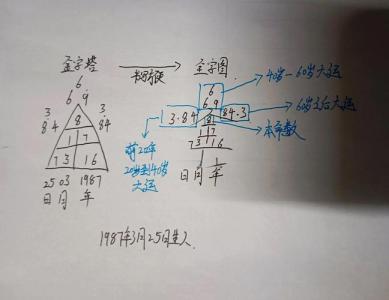 金字塔
书写方便
金字图
6
6.9
3
8.4
8
3
.84
1 7
7 3 1 6
25 03 1987
日 月 年
6
6.9
3.84
8
84.3
1 7
7 3 1 6
日 月 年
前20年
20岁到40岁
大运
40岁—60岁大运
60岁之后大运
本命数
1987年3月25日生人